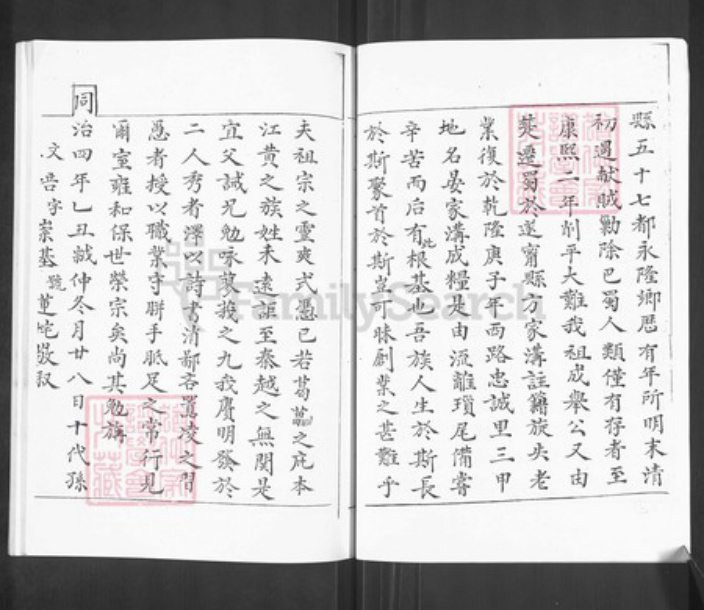 縣五十七都永隆鄉居有年所明末清
初遇献賊勦除巴蜀人類僅有存者至
康熙二年削平大難我祖成舉公又由
楚遷蜀於遂甯縣方家溝註籍族失老
業復於乾隆庚子年西路忠誠里三甲
地名晏家溝成糧是由流離瑣尾備嘗
辛苦而后有此根基也吾族人生於斯長
於斯聚首於斯豈可昧創業之甚難乎
夫祖宗之靈爽式憑已若葛藟之庇本
江黄之族姓未遠詎至秦越之無関是
宜父誡兄勉咏蓼莪之九我賡明發於
二人秀者澤以詩書消鄙吝囂凌之習
愚者授以職業守胼手胝足之常行見
爾室雍和保世榮宗矣尚其勉旃
同治四年乙丑歲仲冬月廿八日十代孫
文 字崇基號 敬叙
FamilySearch